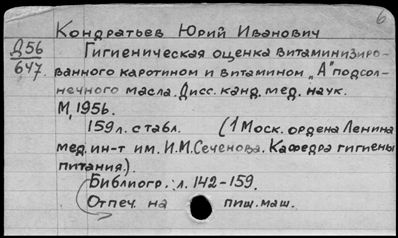 6
Кондратьев Юрий Иванович
Д56 Гигиеническая оценка витаминизиро-
647. ванного каротином и витамином „А" подсол-
нечного масла. Дисс. канд. мед. наук.
М, 1956.
159 л. с табл. (1 Моск. ордена Ленина
мед. ин-т им. И.М. Сеченова. Кафедра гигиены
питания.).
Библиогр.: л. 142-159.
Отпеч. на пиш. маш.